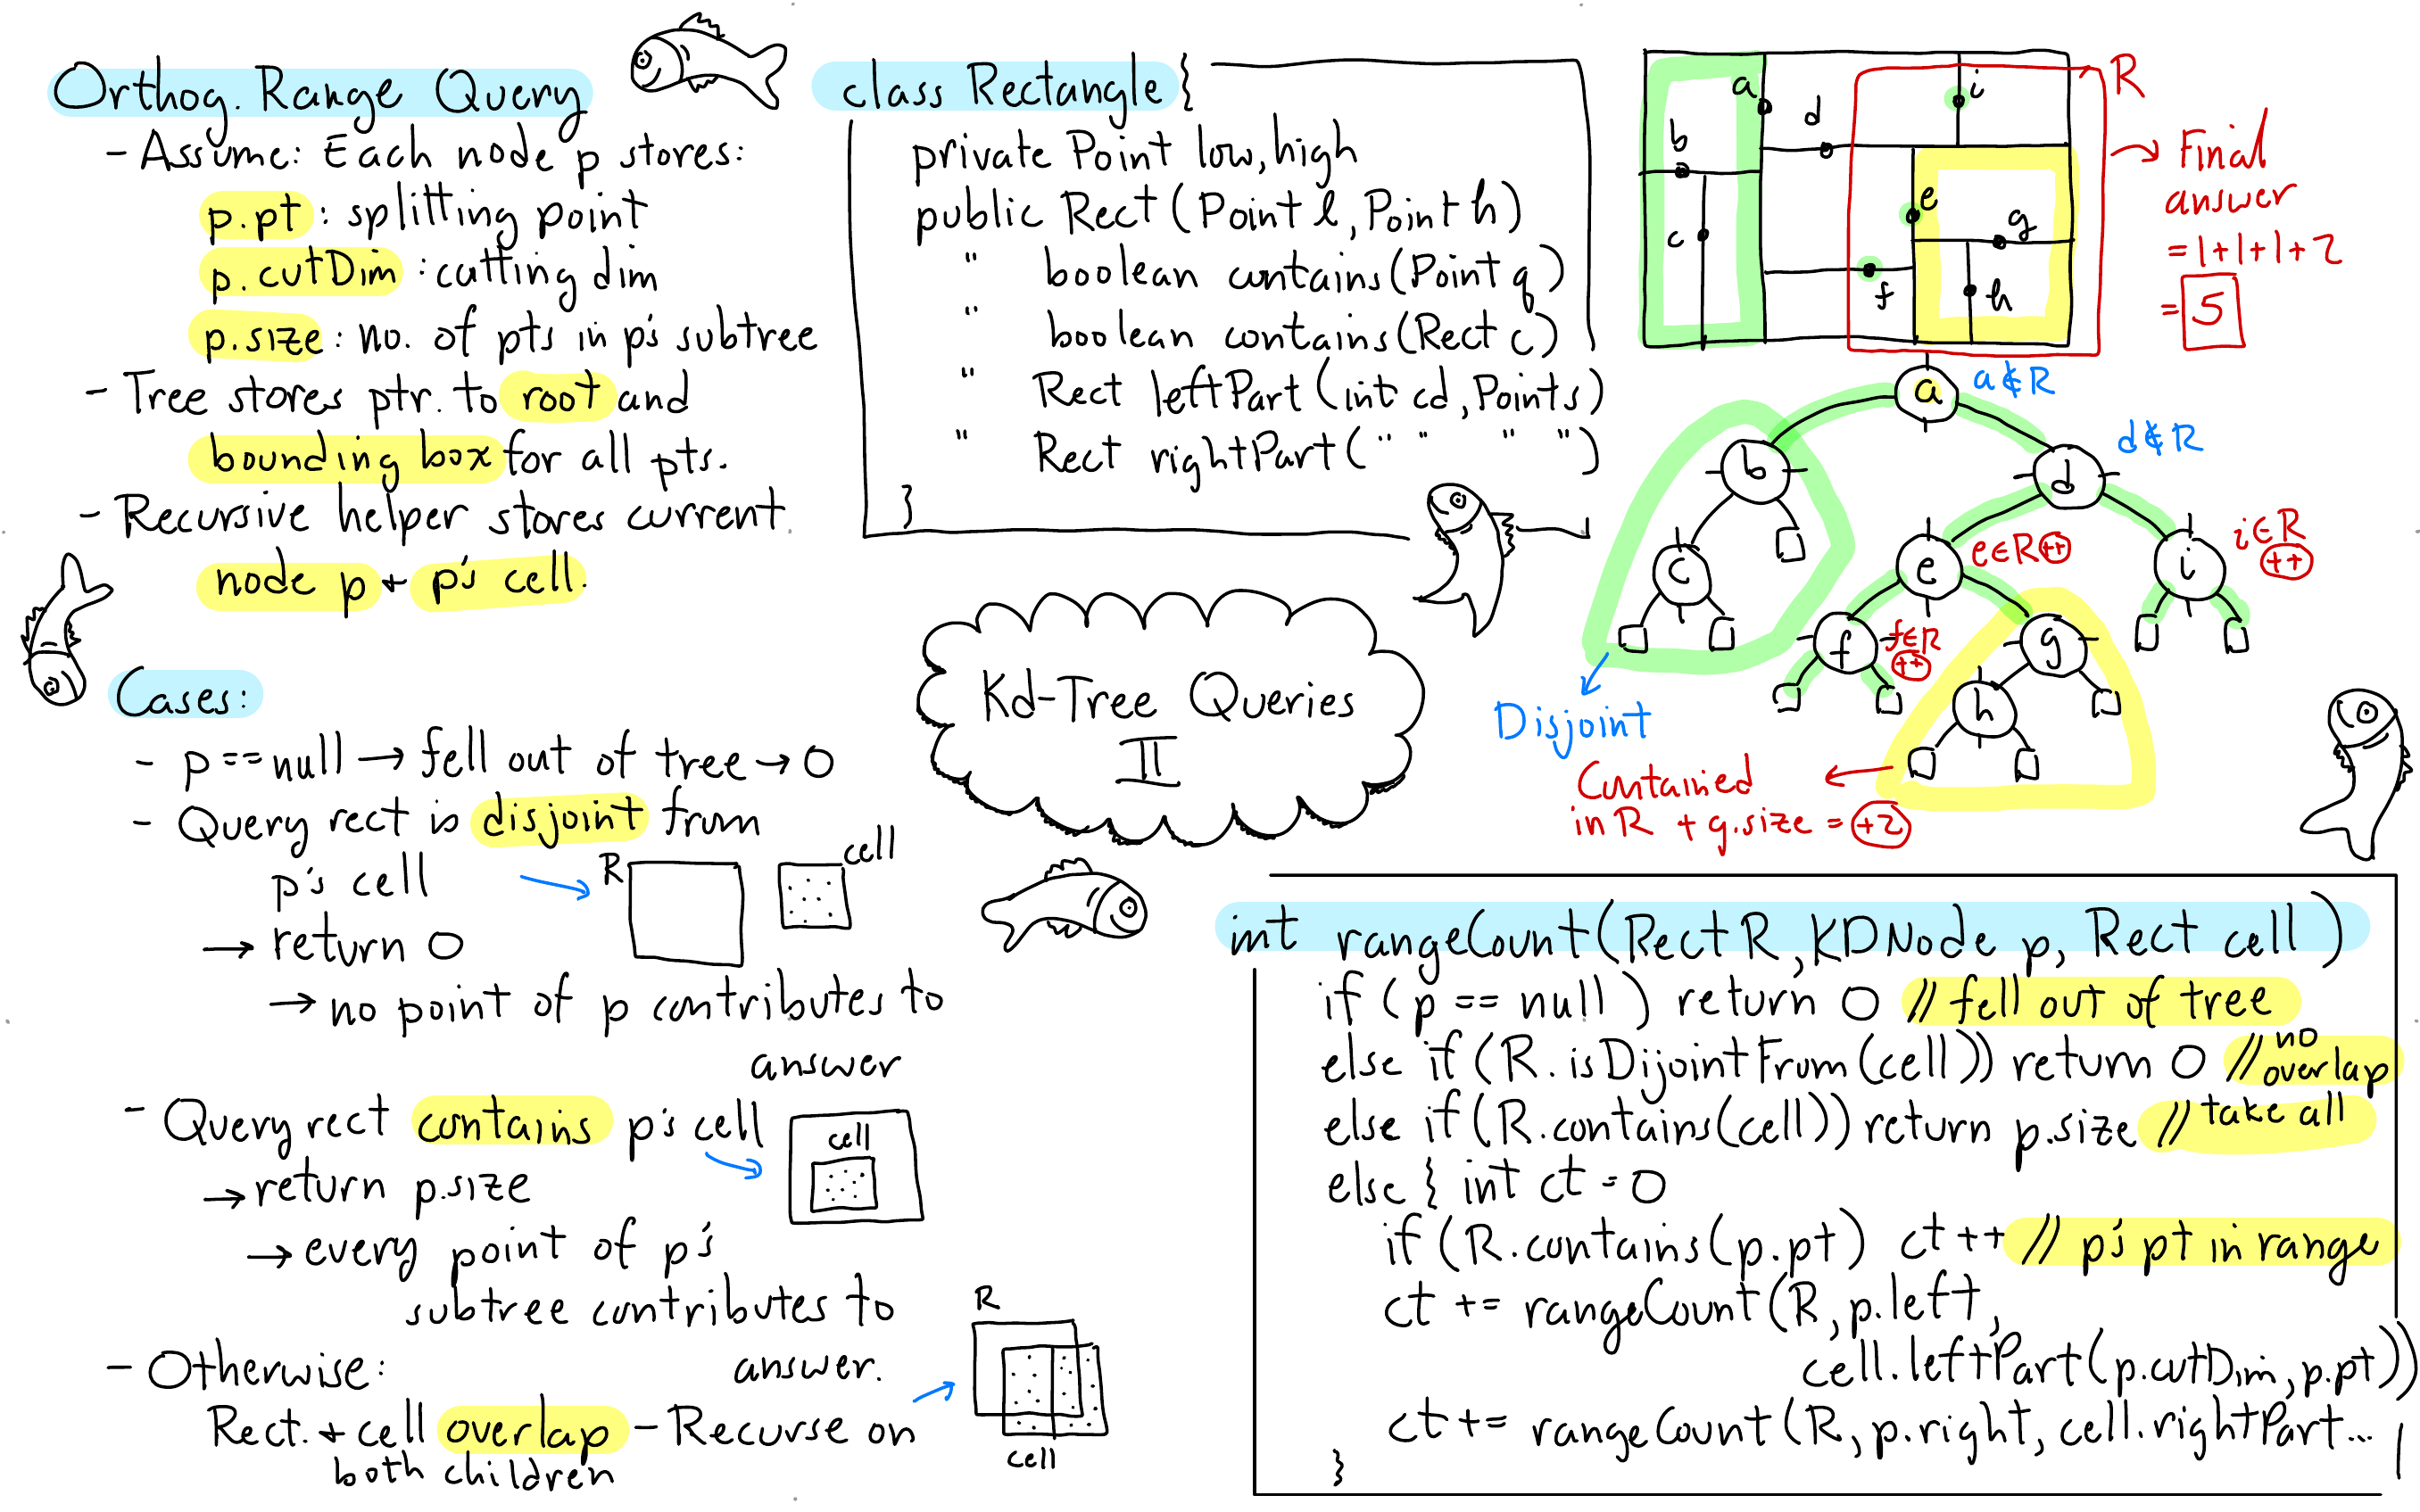 Orthog. Range Query
- Assume: Each node p stores:
p.pt: splitting point
p.cutDim: cutting dim
p.size: no. of pts in p's subtree
- Tree stores ptr. to root and
bounding box for all pts.
- Recursive helper stores current
node p + p's cell.
Cases:
- p == null → fell out of tree → 0
- Query rect is disjoint from
p's cell
→ return 0
→ no point of p contributes to
answer
R
cell
- Query rect contains p's cell
→ return p.size
→ every point of p's
subtree contributes to
answer.
cell
- Otherwise:
Rect. + cell overlap - Recurse on
both children
R
cell
class Rectangle {
private Point low, high
public Rect (Point l, Point h)
" boolean contains (Point q)
" boolean contains (Rect c)
" Rect leftPart (int cd, Point s)
" Rect rightPart (" " " ")
}
Kd-Tree Queries
II
a
b
c
d
e
f
g
h
i
R
→ Final
answer
= 1+1+1+2
= 5
a a∉R
b
d d∉R
c
e e∈R ++
i i∈R
++
f f∈R
++
g
h
Disjoint
Contained
in R + g.size = +2
int rangeCount (Rect R, KDNode p, Rect cell)
if (p == null) return 0 // fell out of tree
else if (R.isDijointFrom(cell)) return 0 // no overlap
else if (R.contains(cell)) return p.size // take all
else { int ct = 0
if (R.contains(p.pt) ct++ // p's pt in range
ct += rangeCount (R, p.left,
cell.leftPart (p.cutDim, p.pt))
ct += rangeCount (R, p.right, cell.rightPart...
}